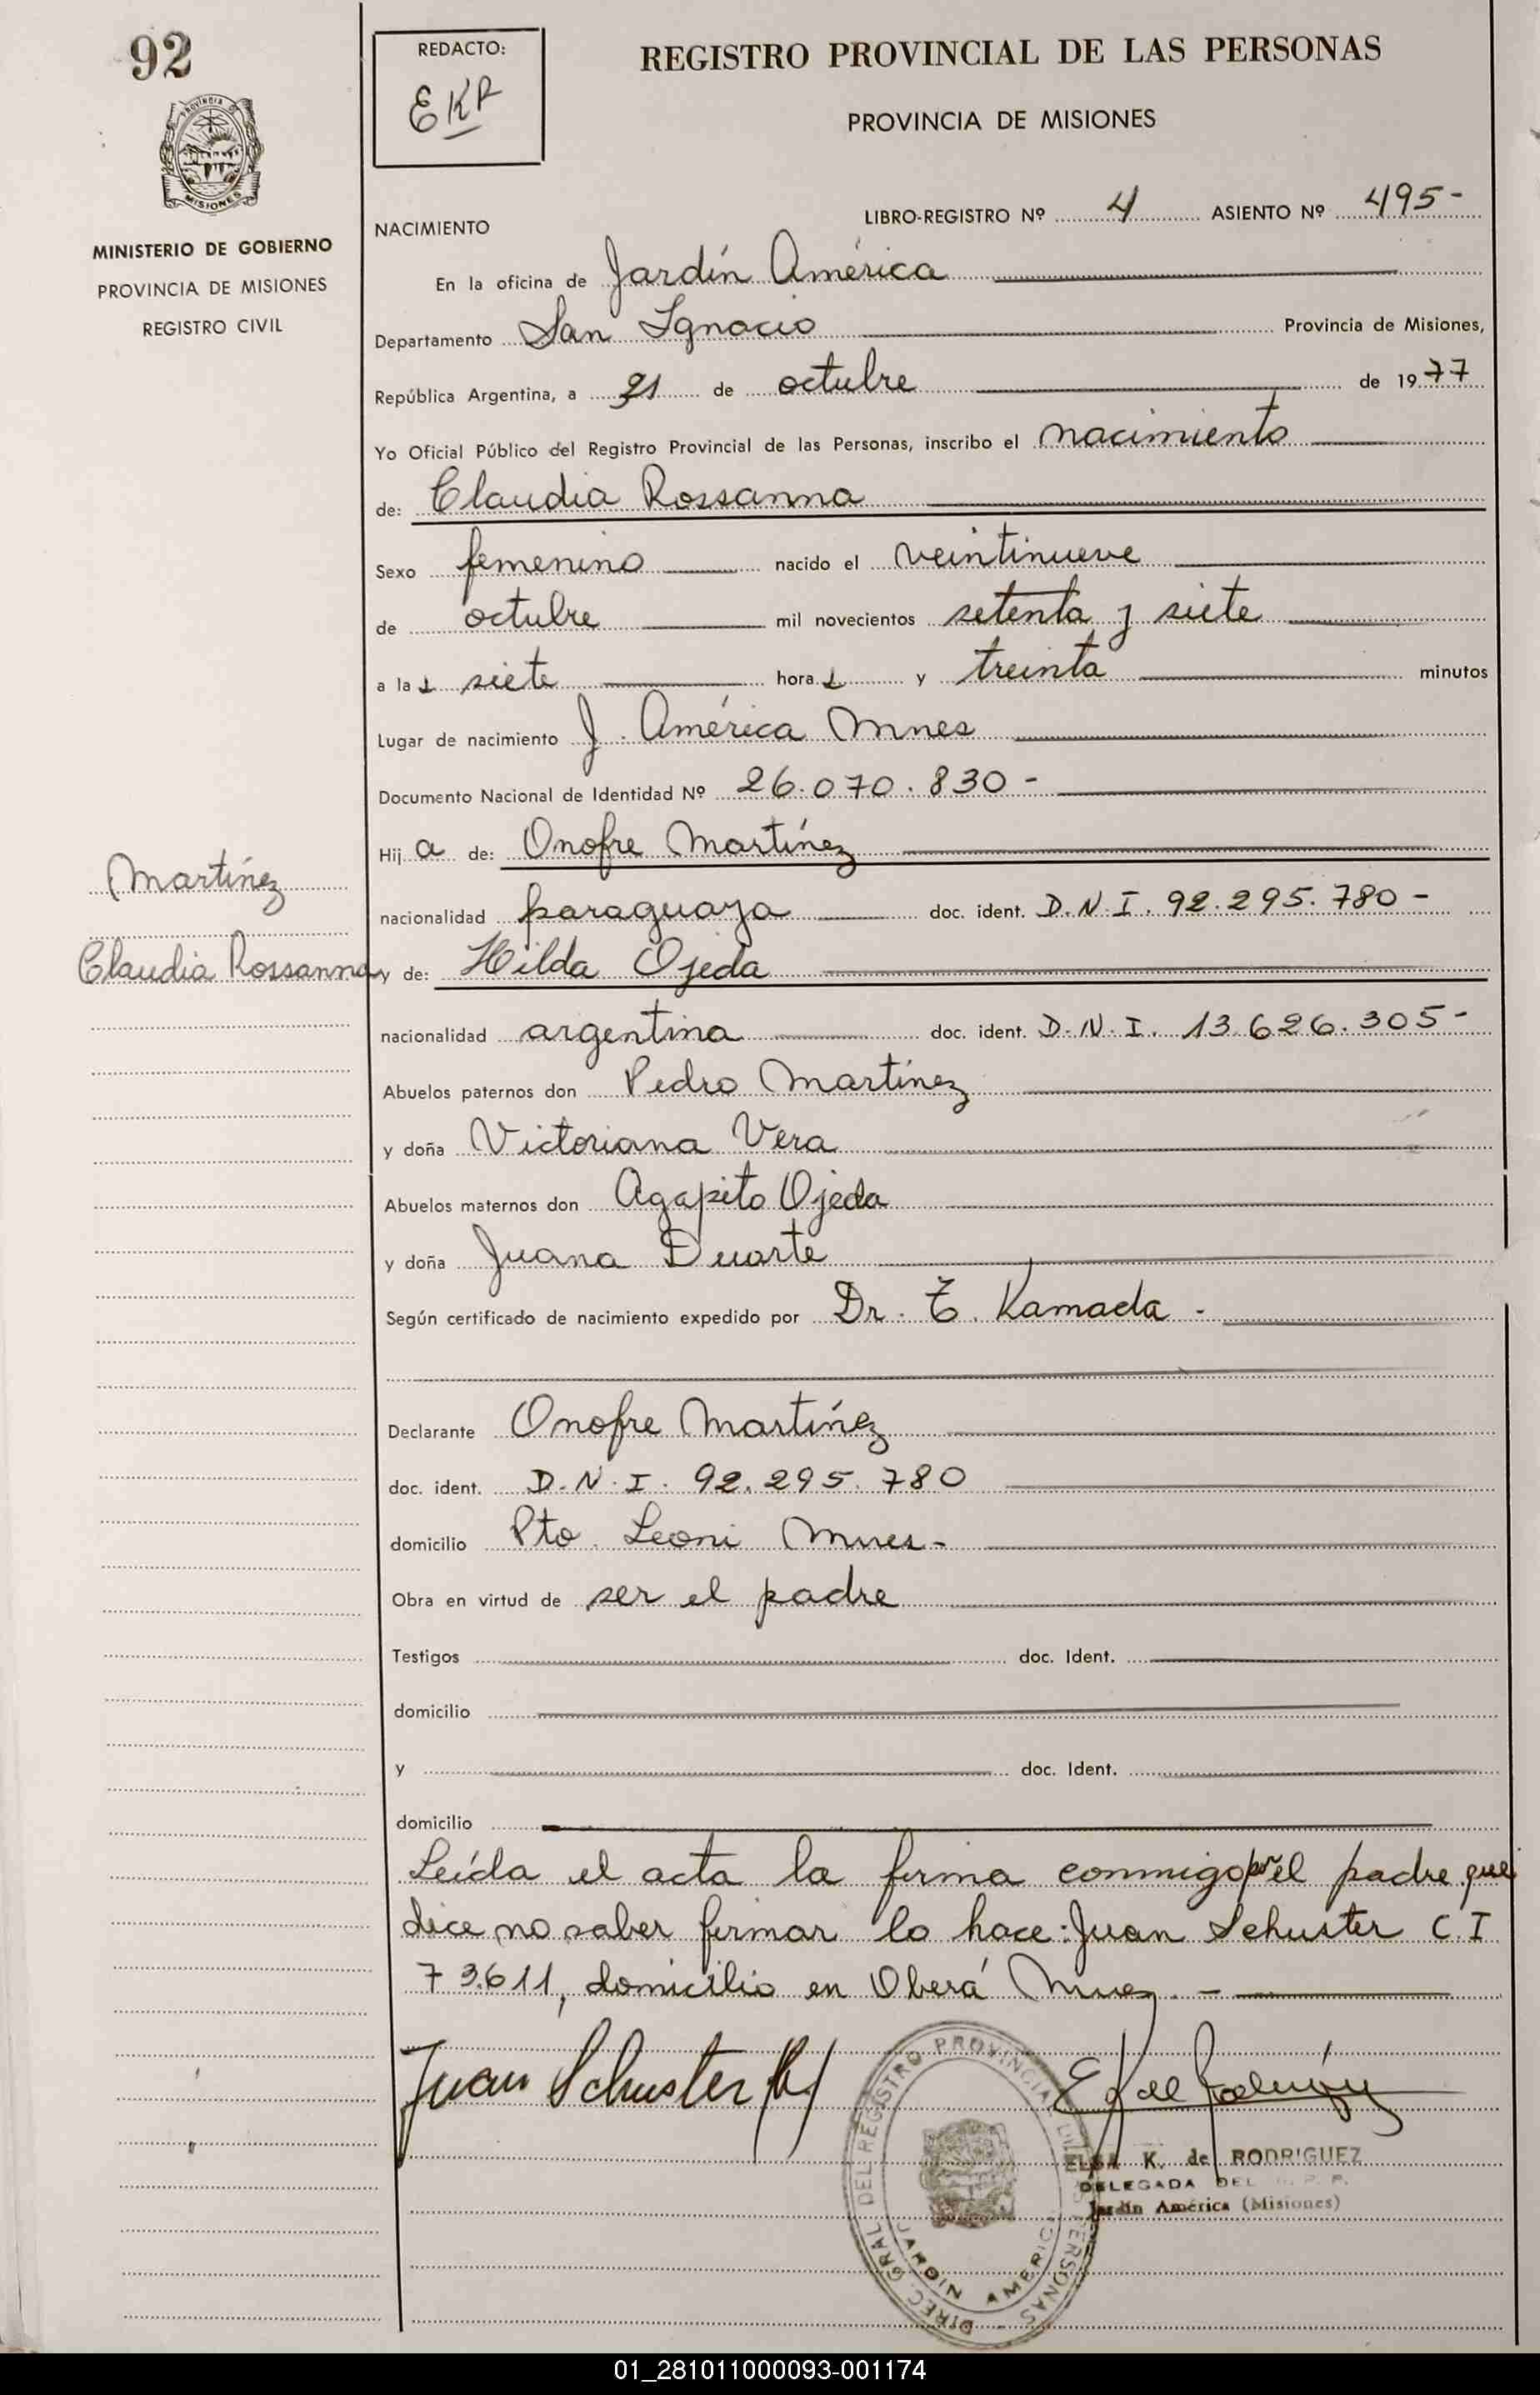 92
REDACTO:
EKR
REGISTRO PROVINCIAL DE LAS PERSONAS
PROVINCIA DE MISIONES
PROVINCIA
MISIONES
MINISTERIO DE GOBIERNO
PROVINCIA DE MISIONES
REGISTRO CIVIL
NACIMIENTO
LIBRO-REGISTRO Nº 4 ASIENTO Nº 495-
En la oficina de Jardín América
Departamento San Ignacio Provincia de Misiones,
República Argentina, a 31 de octubre de 1977
Yo Oficial Público del Registro Provincial de las Personas, inscribo el nacimiento
de: Claudia Rossanna
Sexo femenino nacido el veintinueve
de octubre mil novecientos setenta y siete
a la s siete hora s y treinta minutos
Lugar de nacimiento J. América Mnes
Documento Nacional de Identidad Nº 26.070.830-
Hij a de: Onofre Martínez
Martínez
nacionalidad paraguaya doc. ident. D.N.I. 92.295.780-
Claudia Rossanna
y de: Hilda Ojeda
nacionalidad argentina doc. ident. D.N.I. 13.626.305-
Abuelos paternos don Pedro Martínez
y doña Victoriana Vera
Abuelos maternos don Agapito Ojeda
y doña Juana Duarte
Según certificado de nacimiento expedido por Dr. T. Kamada.
Declarante Onofre Martínez
doc. ident. D.N.I. 92.295.780
domicilio Pto. Leoni Mnes-
Obra en virtud de ser el padre
Testigos doc. Ident.
domicilio
y doc. Ident.
domicilio
Leída el acta la firma conmigo por el padre que
dice no saber firmar lo hace: Juan Schuster C.I
73.611, domicilio en Oberá Mnes.-
Juan Schuster
DIREC. GRAL DEL REGISTRO PROVINCIAL DE LAS PERSONAS
JARDIN AMERICA
ELSA K. de RODRIGUEZ
DELEGADA DEL R. P. P.
Jardín América (Misiones)
01_281011000093-001174